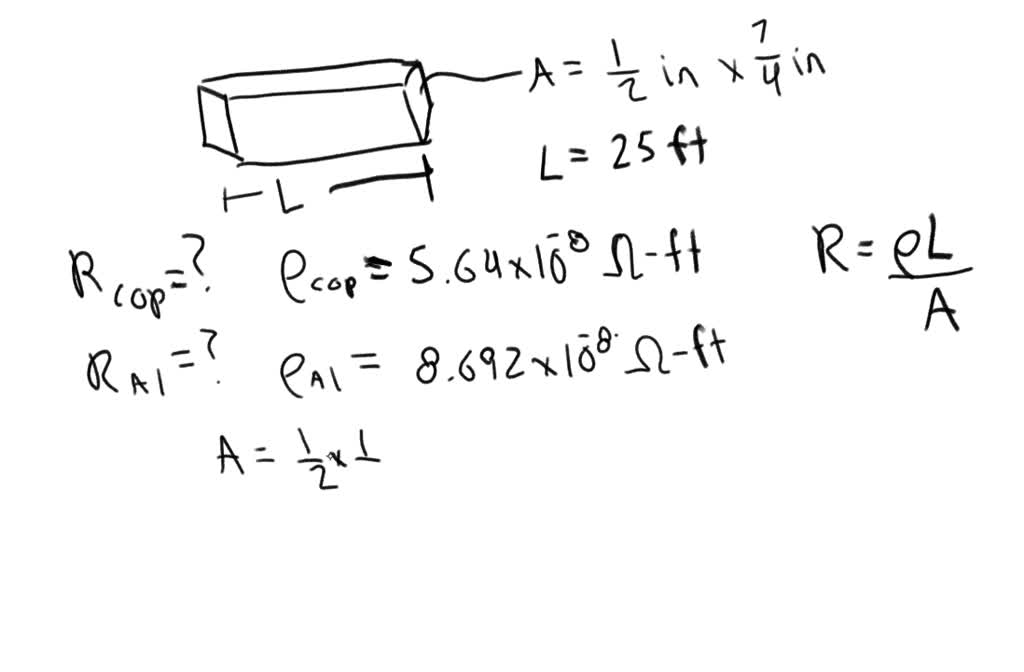 A = 1/2 in × 7/4 in
L = 25 ft
L
R = ρL/A
R_cop = ? ρ_cop = 5.64×10^-8 Ω-ft
R_Al = ? ρ_Al = 8.692×10^-8 Ω-ft
A = 1/2 × 1